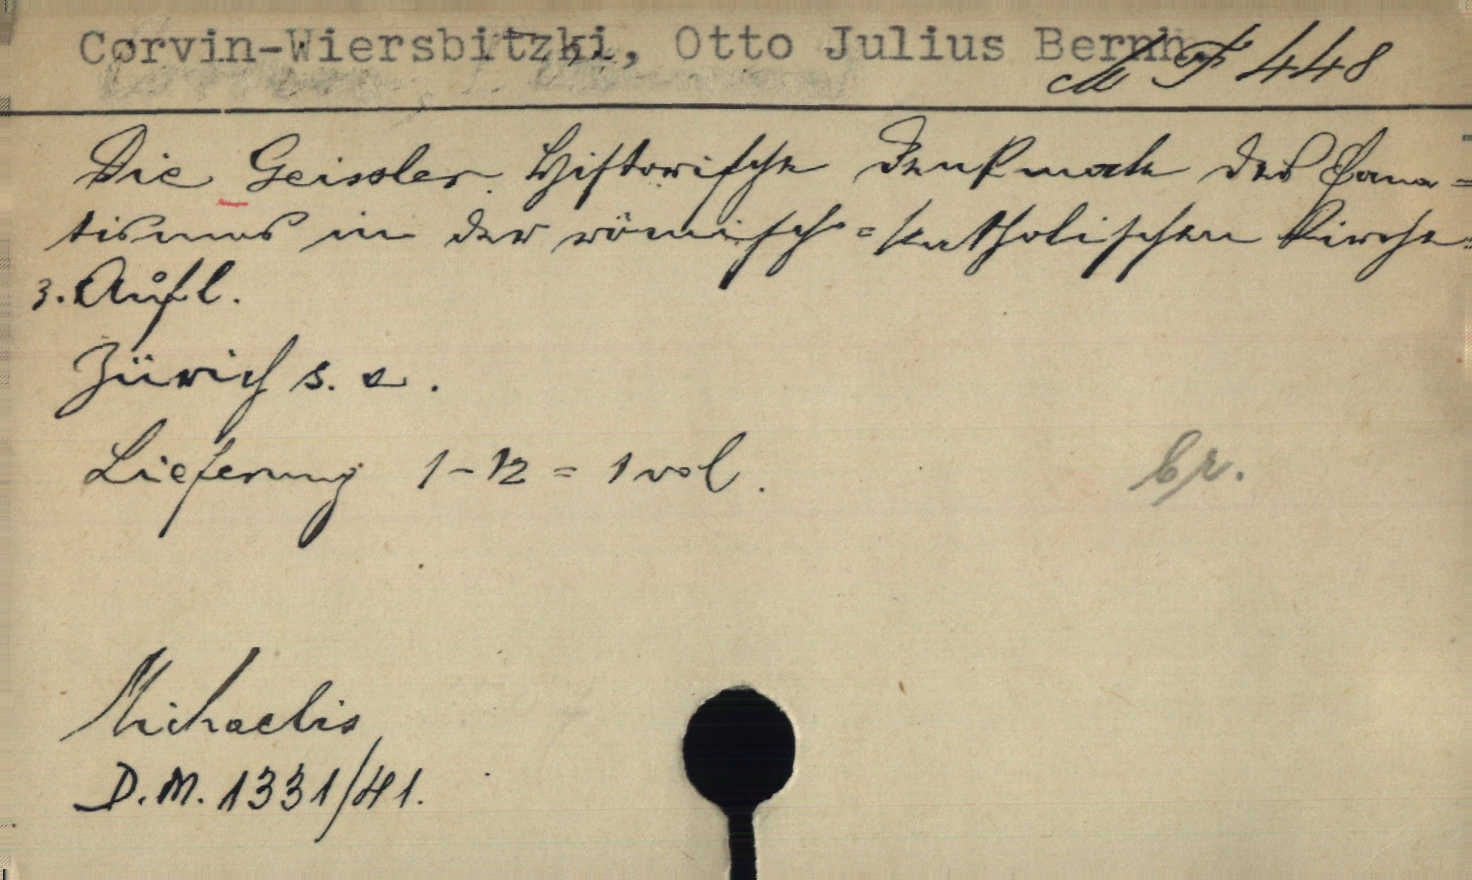 Corvin-Wiersbitzki, Otto Julius Bernh.
M F 448
Die Geissler. Historische Denkmale des Fana-
tismus in der römisch-katholischen Kirche.
3. Aufl.
Zürich s. a.
Lieferung 1-12 = 1 vol.
Michaelis
D.M. 1331/41.